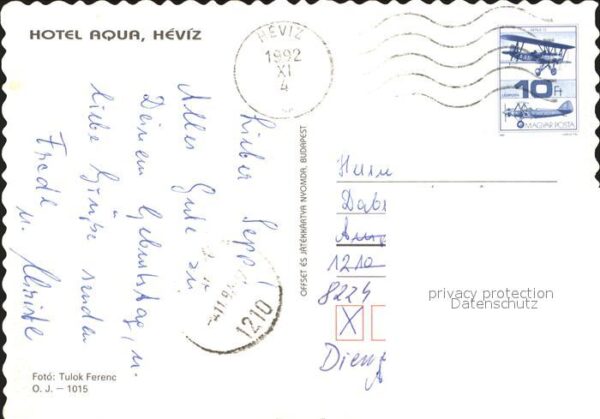 HOTEL AQUA, HÉVÍZ
HÉVÍZ
1992
XI
4
10 Ft
MAGYAR POSTA
Lieber Sepp!
Alles Gute zu
Deinem Geburtstag, u.
liebe Grüße senden
Friedl u.
1210
OFFSET ÉS JÁTÉKKÁRTYA NYOMDA, BUDAPEST
1210
8224
X
privacy protection
Datenschutz
Fotó: Tulok Ferenc
O. J. – 1015